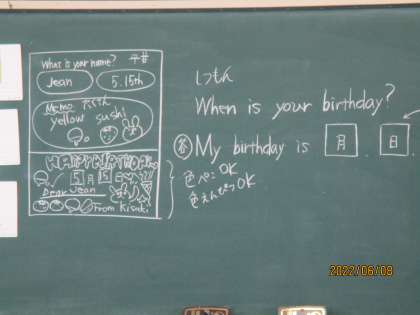 What is your name?
Jean
5.15th
Memo
yellow sushi
HAPPY BIRTHDAY
5月15日
Dear Jean
From Kisaki
しつもん
When is your birthday?
答 My birthday is 月 日
色ペン OK
色えんぴつ OK
2022/06/08